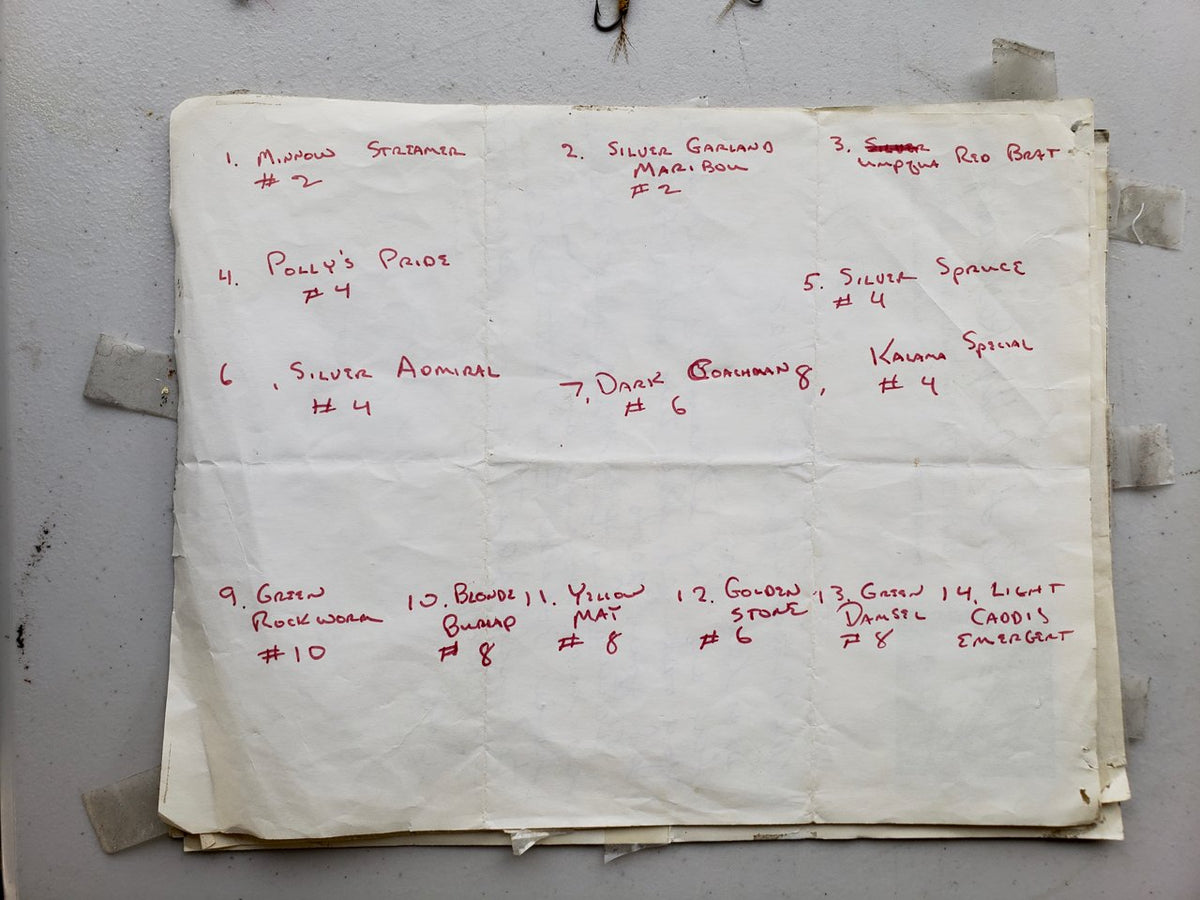 1. MINNOW STREAMER
# 2
2. SILVER GARLAND
MARIBOU
# 2
3. SILVER
UMPQUA RED BRAT
4. POLLY'S PRIDE
# 4
5. SILVER SPRUCE
# 4
6 . SILVER ADMIRAL
# 4
7. DARK COACHMAN
# 6
8, KALAMA SPECIAL
# 4
9. GREEN
ROCKWORM
#10
10. BLONDE
BURLAP
# 8
11. YELLOW
MAY
# 8
12. GOLDEN
STONE
# 6
13. GREEN
DAMSEL
# 8
14. LIGHT
CADDIS
EMERGERT